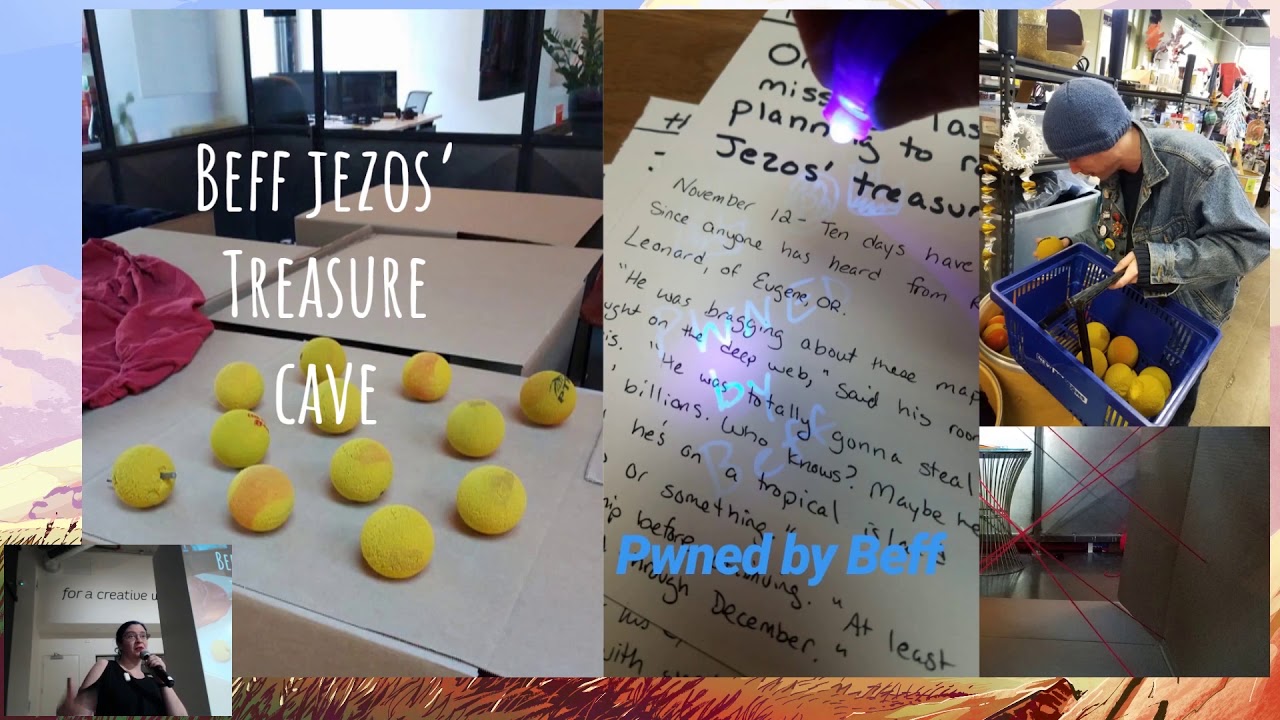 Beff jezos'
Treasure
cave
On
miss
las
planning to ro
Jezos' treasur
November 12 - Ten days have
Since anyone has heard from R
Leonard, of Eugene, OR.
"He was bragging about these map
ught on the deep web," said his room
is. "He was totally gonna steal
billions. Who knows? Maybe he
he's on a tropical island
Or something."
ip before continuing. "At least
through December."
his
with
PWNED
by
Beff
Pwned by Beff
for a creative w
Be